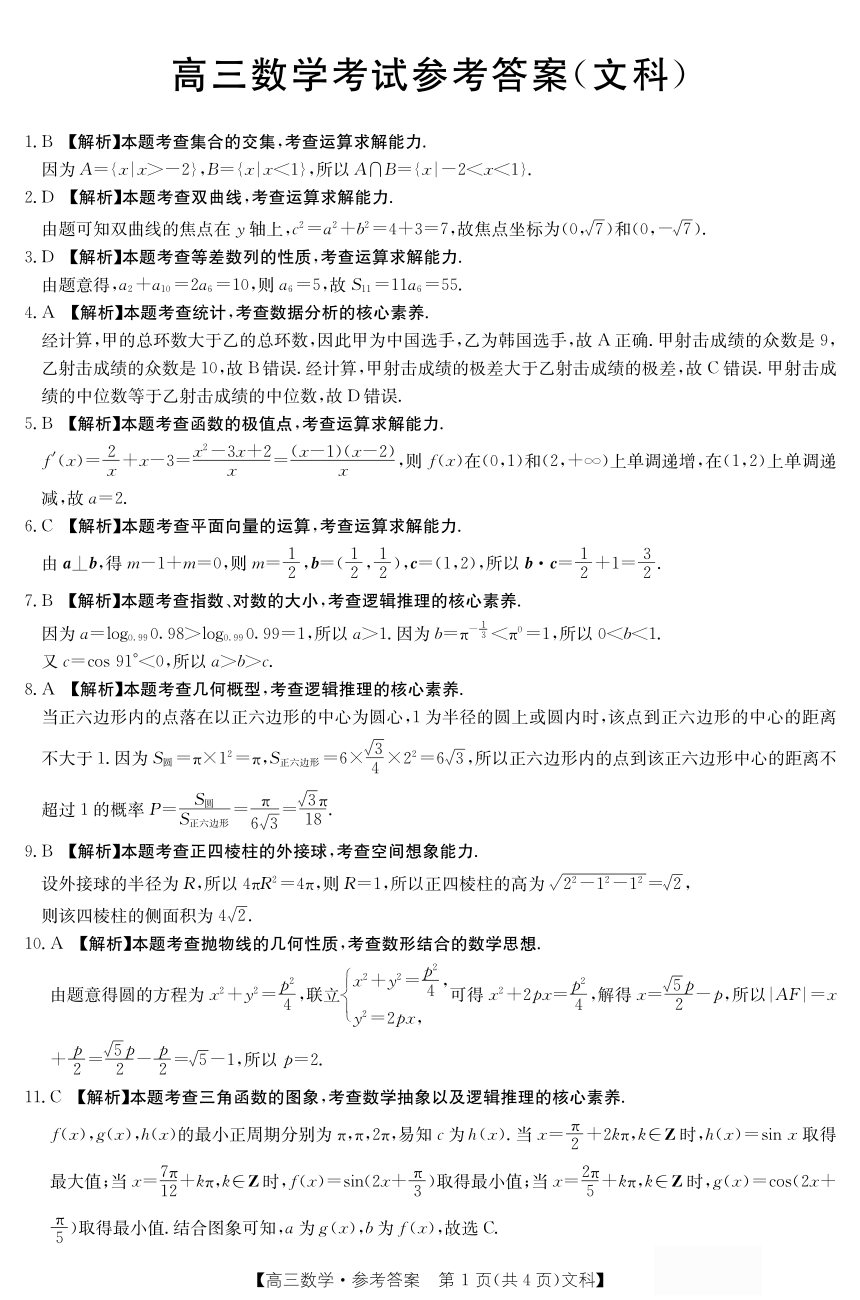 高三数学考试参考答案(文科)
1. B 【解析】本题考查集合的交集,考查运算求解能力.
因为 A={x|x>-2},B={x|x<1},所以 A∩B={x|-2<x<1}.
2. D 【解析】本题考查双曲线,考查运算求解能力.
由题可知双曲线的焦点在 y 轴上,c²=a²+b²=4+3=7,故焦点坐标为(0,√7)和(0,-√7).
3. D 【解析】本题考查等差数列的性质,考查运算求解能力.
由题意得,a₂+a₁₀=2a₆=10,则 a₆=5,故 S₁₁=11a₆=55.
4. A 【解析】本题考查统计,考查数据分析的核心素养.
经计算,甲的总环数大于乙的总环数,因此甲为中国选手,乙为韩国选手,故 A 正确. 甲射击成绩的众数是 9,
乙射击成绩的众数是 10,故 B 错误. 经计算,甲射击成绩的极差大于乙射击成绩的极差,故 C 错误. 甲射击成
绩的中位数等于乙射击成绩的中位数,故 D 错误.
5. B 【解析】本题考查函数的极值点,考查运算求解能力.
f′(x)=2/x+x-3=(x²-3x+2)/x=(x-1)(x-2)/x,则 f(x)在(0,1)和(2,+∞)上单调递增,在(1,2)上单调递
减,故 a=2.
6. C 【解析】本题考查平面向量的运算,考查运算求解能力.
由 a⊥b,得 m-1+m=0,则 m=1/2,b=(1/2,1/2),c=(1,2),所以 b·c=1/2+1=3/2.
7. B 【解析】本题考查指数、对数的大小,考查逻辑推理的核心素养.
因为 a=log₀.₉₉0.98>log₀.₉₉0.99=1,所以 a>1. 因为 b=π^(-1/3)<π⁰=1,所以 0<b<1.
又 c=cos 91°<0,所以 a>b>c.
8. A 【解析】本题考查几何概型,考查逻辑推理的核心素养.
当正六边形内的点落在以正六边形的中心为圆心,1 为半径的圆上或圆内时,该点到正六边形的中心的距离
不大于 1. 因为 S圆=π×1²=π,S正六边形=6×√3/4×2²=6√3,所以正六边形内的点到该正六边形中心的距离不
超过 1 的概率 P=S圆/S正六边形=π/(6√3)=√3π/18.
9. B 【解析】本题考查正四棱柱的外接球,考查空间想象能力.
设外接球的半径为 R,所以 4πR²=4π,则 R=1,所以正四棱柱的高为√(2²-1²-1²)=√2,
则该四棱柱的侧面积为 4√2.
10. A 【解析】本题考查抛物线的几何性质,考查数形结合的数学思想.
由题意得圆的方程为 x²+y²=p²/4,联立{x²+y²=p²/4, y²=2px,可得 x²+2px=p²/4,解得 x=√5p/2-p,所以|AF|=x
+p/2=√5p/2-p/2=√5-1,所以 p=2.
11. C 【解析】本题考查三角函数的图象,考查数学抽象以及逻辑推理的核心素养.
f(x),g(x),h(x)的最小正周期分别为 π,π,2π,易知 c 为 h(x). 当 x=π/2+2kπ,k∈Z 时,h(x)=sin x 取得
最大值;当 x=7π/12+kπ,k∈Z 时,f(x)=sin(2x+π/3)取得最小值;当 x=2π/5+kπ,k∈Z 时,g(x)=cos(2x+
π/5)取得最小值. 结合图象可知,a 为 g(x),b 为 f(x),故选 C.
【高三数学·参考答案 第 1 页(共 4 页)文科】